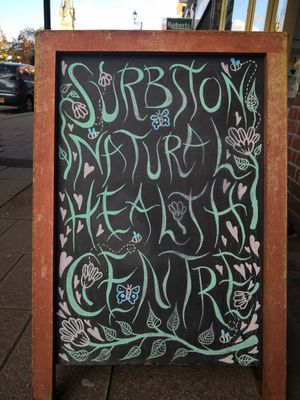 Roberts
SURBITON
NATURAL
HEALTH
CENTRE